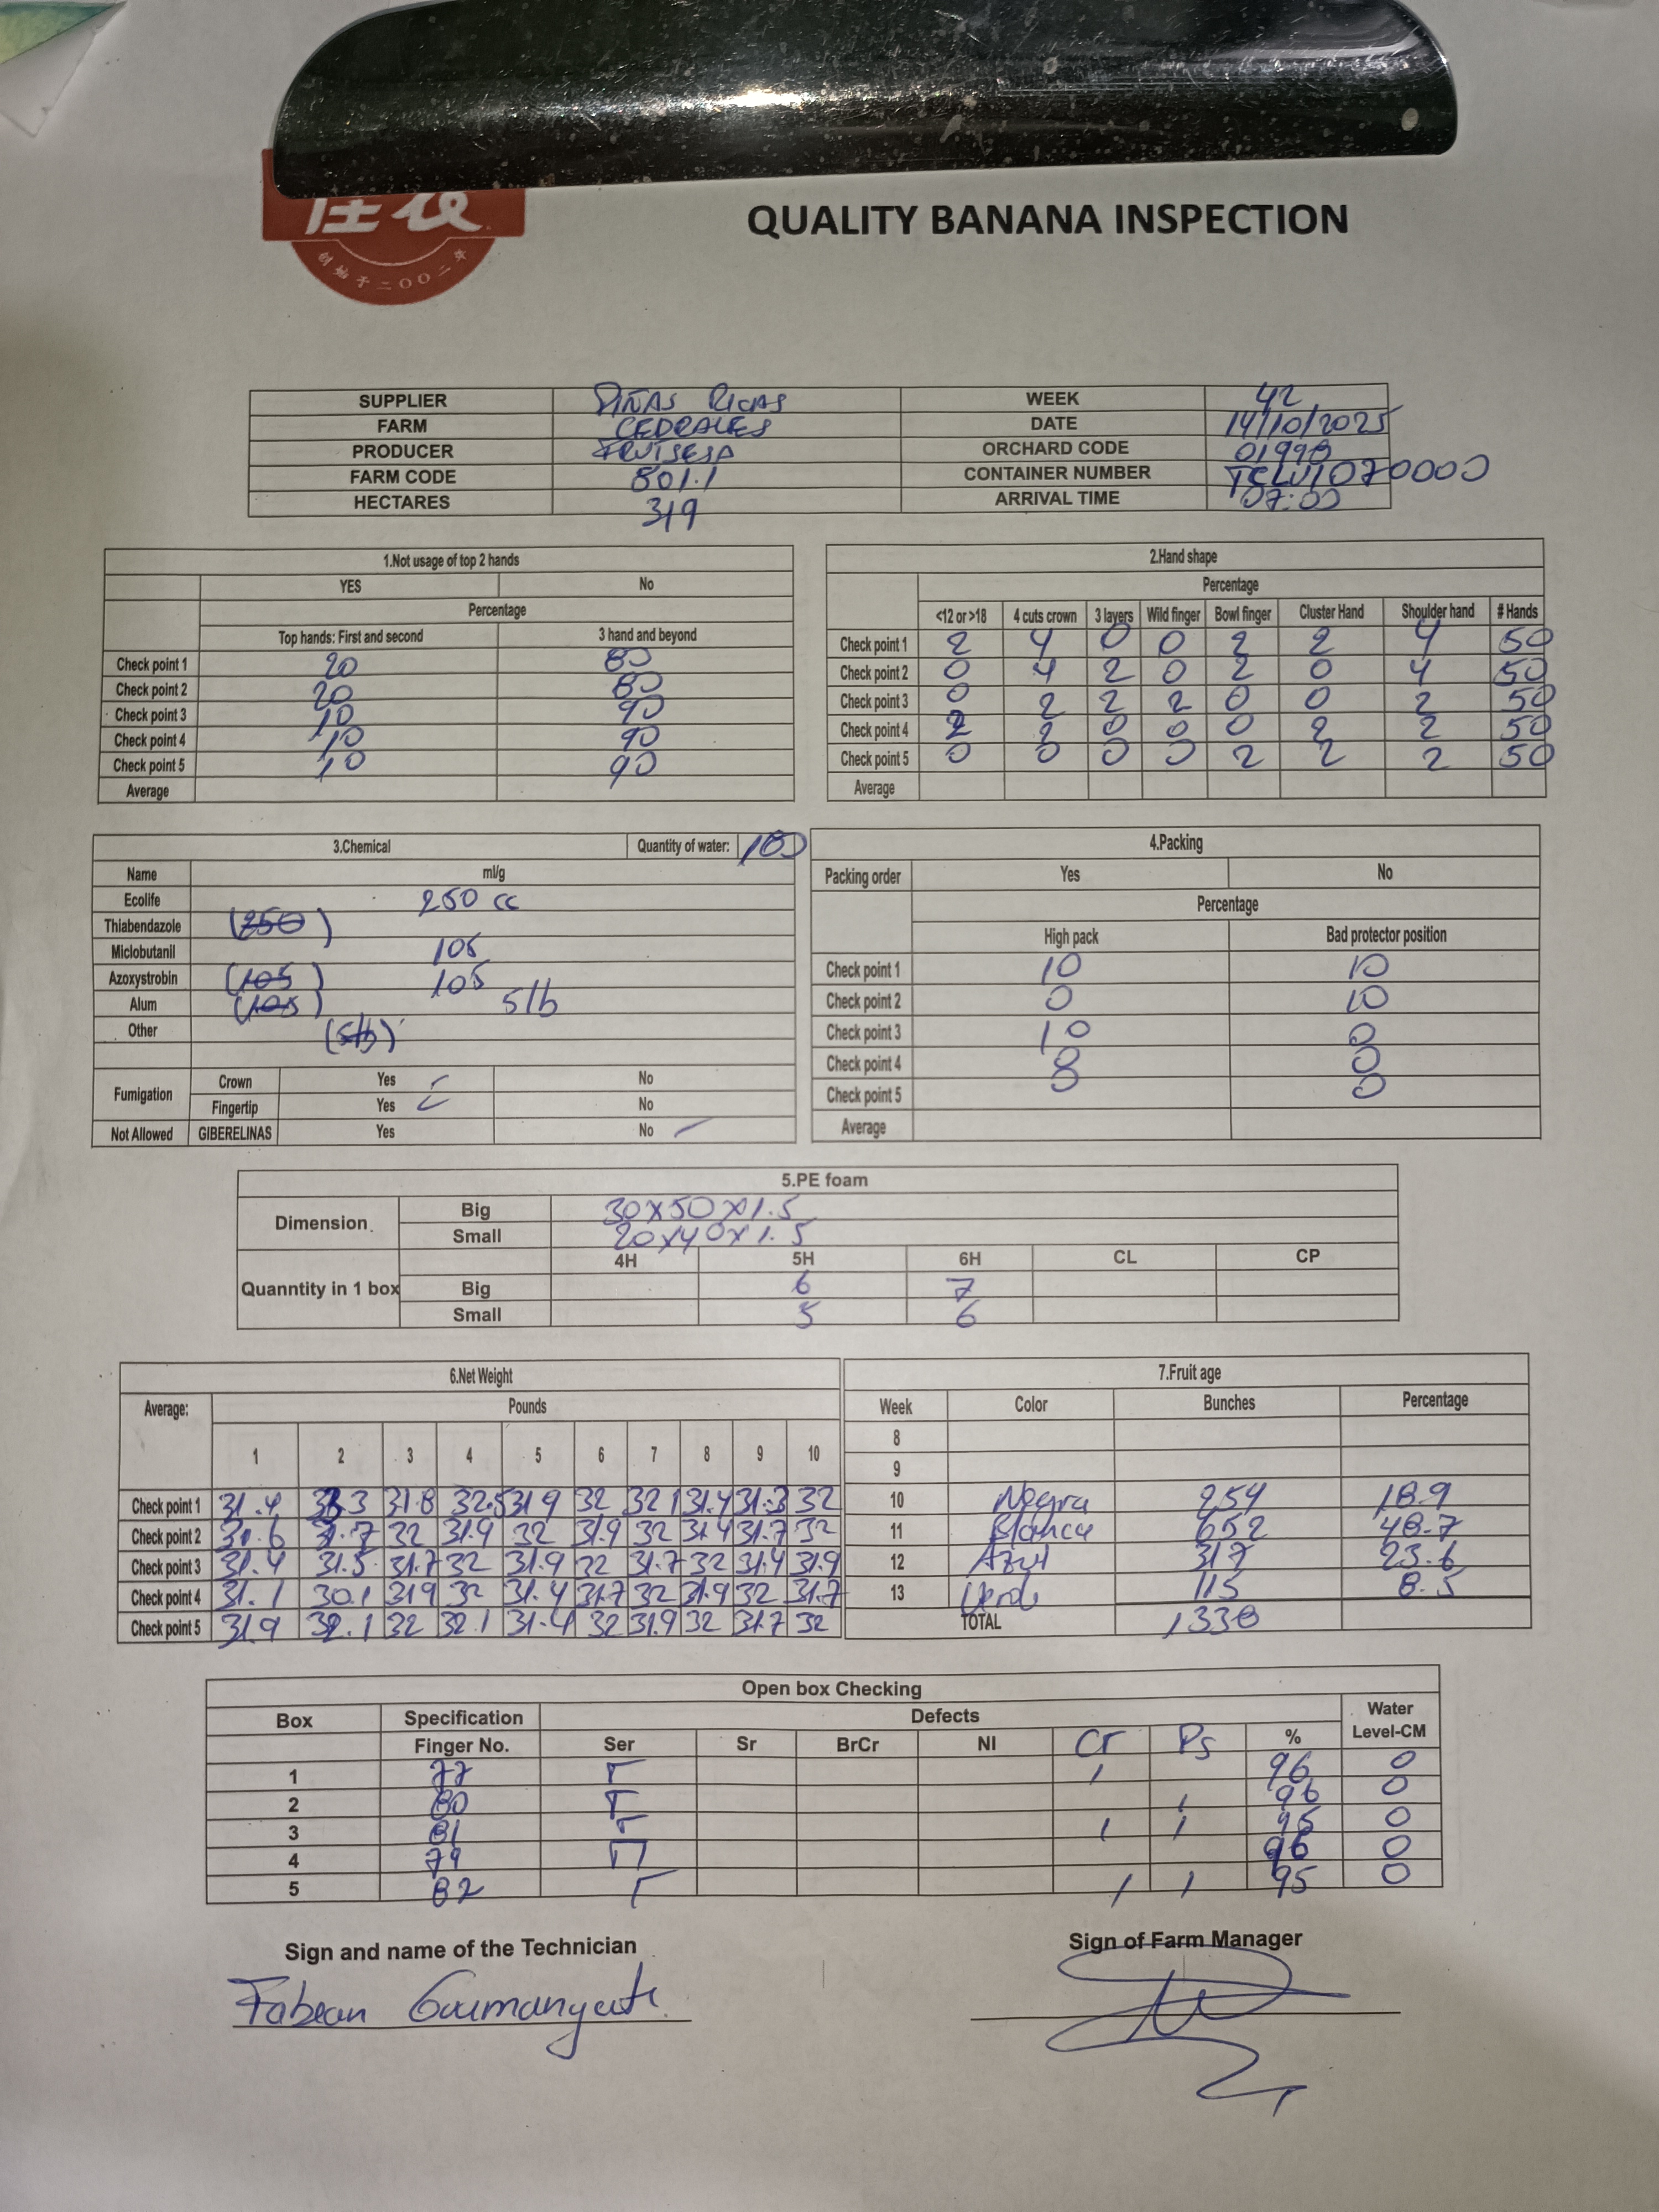 佳农
创始于二〇〇二年
QUALITY BANANA INSPECTION
SUPPLIER PIÑAS RICAS WEEK 42
FARM CEDRALES DATE 14/10/2025
PRODUCER FRUTSESA ORCHARD CODE 01998
FARM CODE 801.1 CONTAINER NUMBER
HECTARES 319 ARRIVAL TIME 07:00
1.Not usage of top 2 hands
YES No
Percentage
Top hands: First and second 3 hand and beyond
Check point 1 20 80
Check point 2 20 80
Check point 3 10 90
Check point 4 10 90
Check point 5 10 90
Average
2.Hand shape
Percentage
<12 or >18 4 cuts crown 3 layers Wild finger Bowl finger Cluster Hand Shoulder hand # Hands
Check point 1 2 4 0 0 2 2 4 50
Check point 2 0 4 2 0 2 0 4 50
Check point 3 0 2 2 2 0 0 2 50
Check point 4 2 2 0 0 0 2 2 50
Check point 5 0 0 0 0 2 2 2 50
Average
3.Chemical Quantity of water: 100
Name ml/g
Ecolife 250 cc
Thiabendazole (250)
Miclobutanil 105
Azoxystrobin (105) 105
Alum (105) 5lb
Other (5lb)
Fumigation Crown Yes No
Fingertip Yes No
Not Allowed GIBERELINAS Yes No
4.Packing
Packing order Yes No
Percentage
High pack Bad protector position
Check point 1 10 10
Check point 2 0 10
Check point 3 10 0
Check point 4 0 0
Check point 5 0 0
Average
5.PE foam
Dimension Big 30x50x1.5
Small 20x40x1.5
4H 5H 6H CL CP
Quanntity in 1 box Big 6 7
Small 5 6
6.Net Weight
Average: Pounds
1 2 3 4 5 6 7 8 9 10
Check point 1 31.4 31.8 32.5 31.9 32 32.1 31.4 31.3 32
Check point 2 31.7 32 31.9 32 31.9 32 31.4 31.7 32
Check point 3 31.4 31.5 31.7 32 31.9 32 31.7 32 31.4 31.9
Check point 4 31.1 30.1 31.9 32 31.4 31.7 32 31.9 32 31.7
Check point 5 31.9 32.1 32 32.1 31.4 32 31.9 32 31.7 32
7.Fruit age
Week Color Bunches Percentage
8
9
10 Negra 254 18.9
11 Blanca 652 48.7
12 Azul 317 23.6
13 Verde 115 8.5
TOTAL 1338
Open box Checking
Box Specification Defects Water Level-CM
Finger No. Ser Sr BrCr NI Cr Ps %
1 77 1 96 0
2 80 1 96 0
3 81 1 1 95 0
4 79 96 0
5 82 1 1 95 0
Sign and name of the Technician Sign of Farm Manager
Fabean